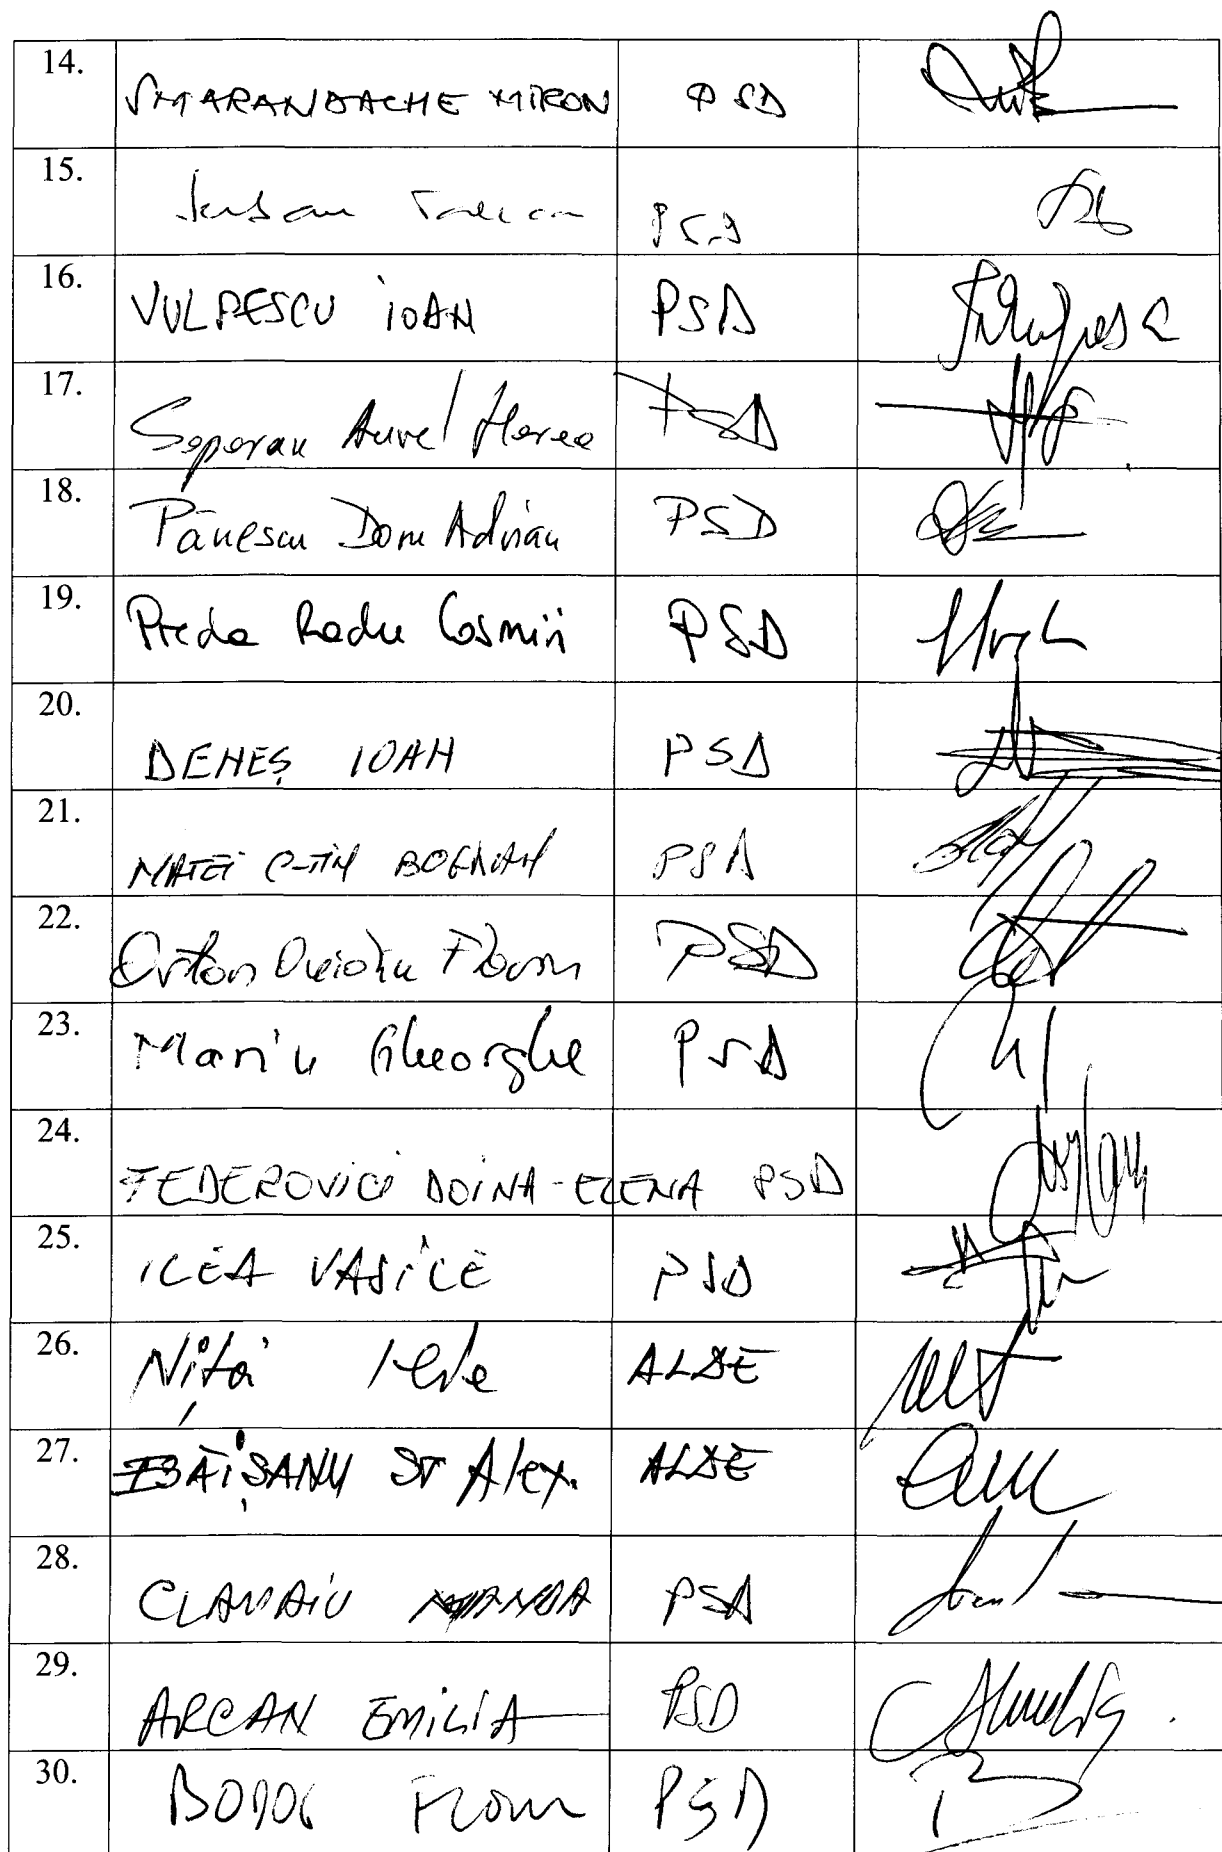 14. SMARANDACHE MIRON PSD
15. PSD
16. VULPESCU IOAN PSD
17. Soporan Aurel Horea PSD
18. Pănescu Doru Adrian PSD
19. Preda Radu Cosmin PSD
20. DENEȘ IOAN PSD
21. MATEI C-TIN BOGDAN PSD
22. Ortan Ovidiu Florin PSD
23. Marin Gheorghe PSD
24. FEDEROVICI DOINA-ELENA PSD
25. ILEA VASILE PSD
26. Niță Ilie ALDE
27. BĂIȘANU ȘT Alex. ALDE
28. CLAUDIU MANDA PSD
29. ARCAN EMILIA PSD
30. BODOG Florin PSD